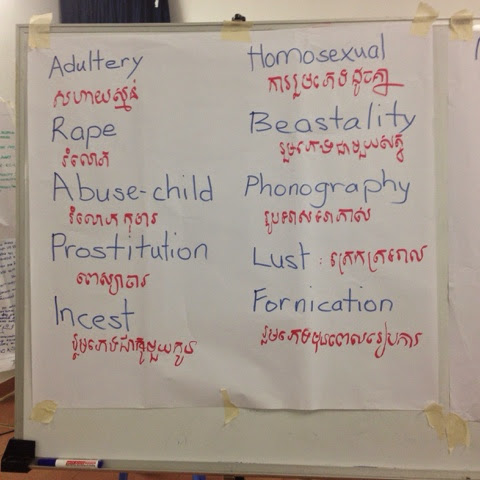 Adultery
សហាយស្មន់
Rape
រំលោភ
Abuse-child
រំលោភកុមារ
Prostitution
ពេស្យាចារ
Incest
រួមភេទជាមួយកូន
Homosexual
ការរួមភេទដូចគ្នា
Beastality
រួមភេទជាមួយសត្វ
Phonography
រូបអាសអាភាស
Lust : ត្រេកត្រអាល
Fornication
រួមភេទមុនពេលរៀបការ